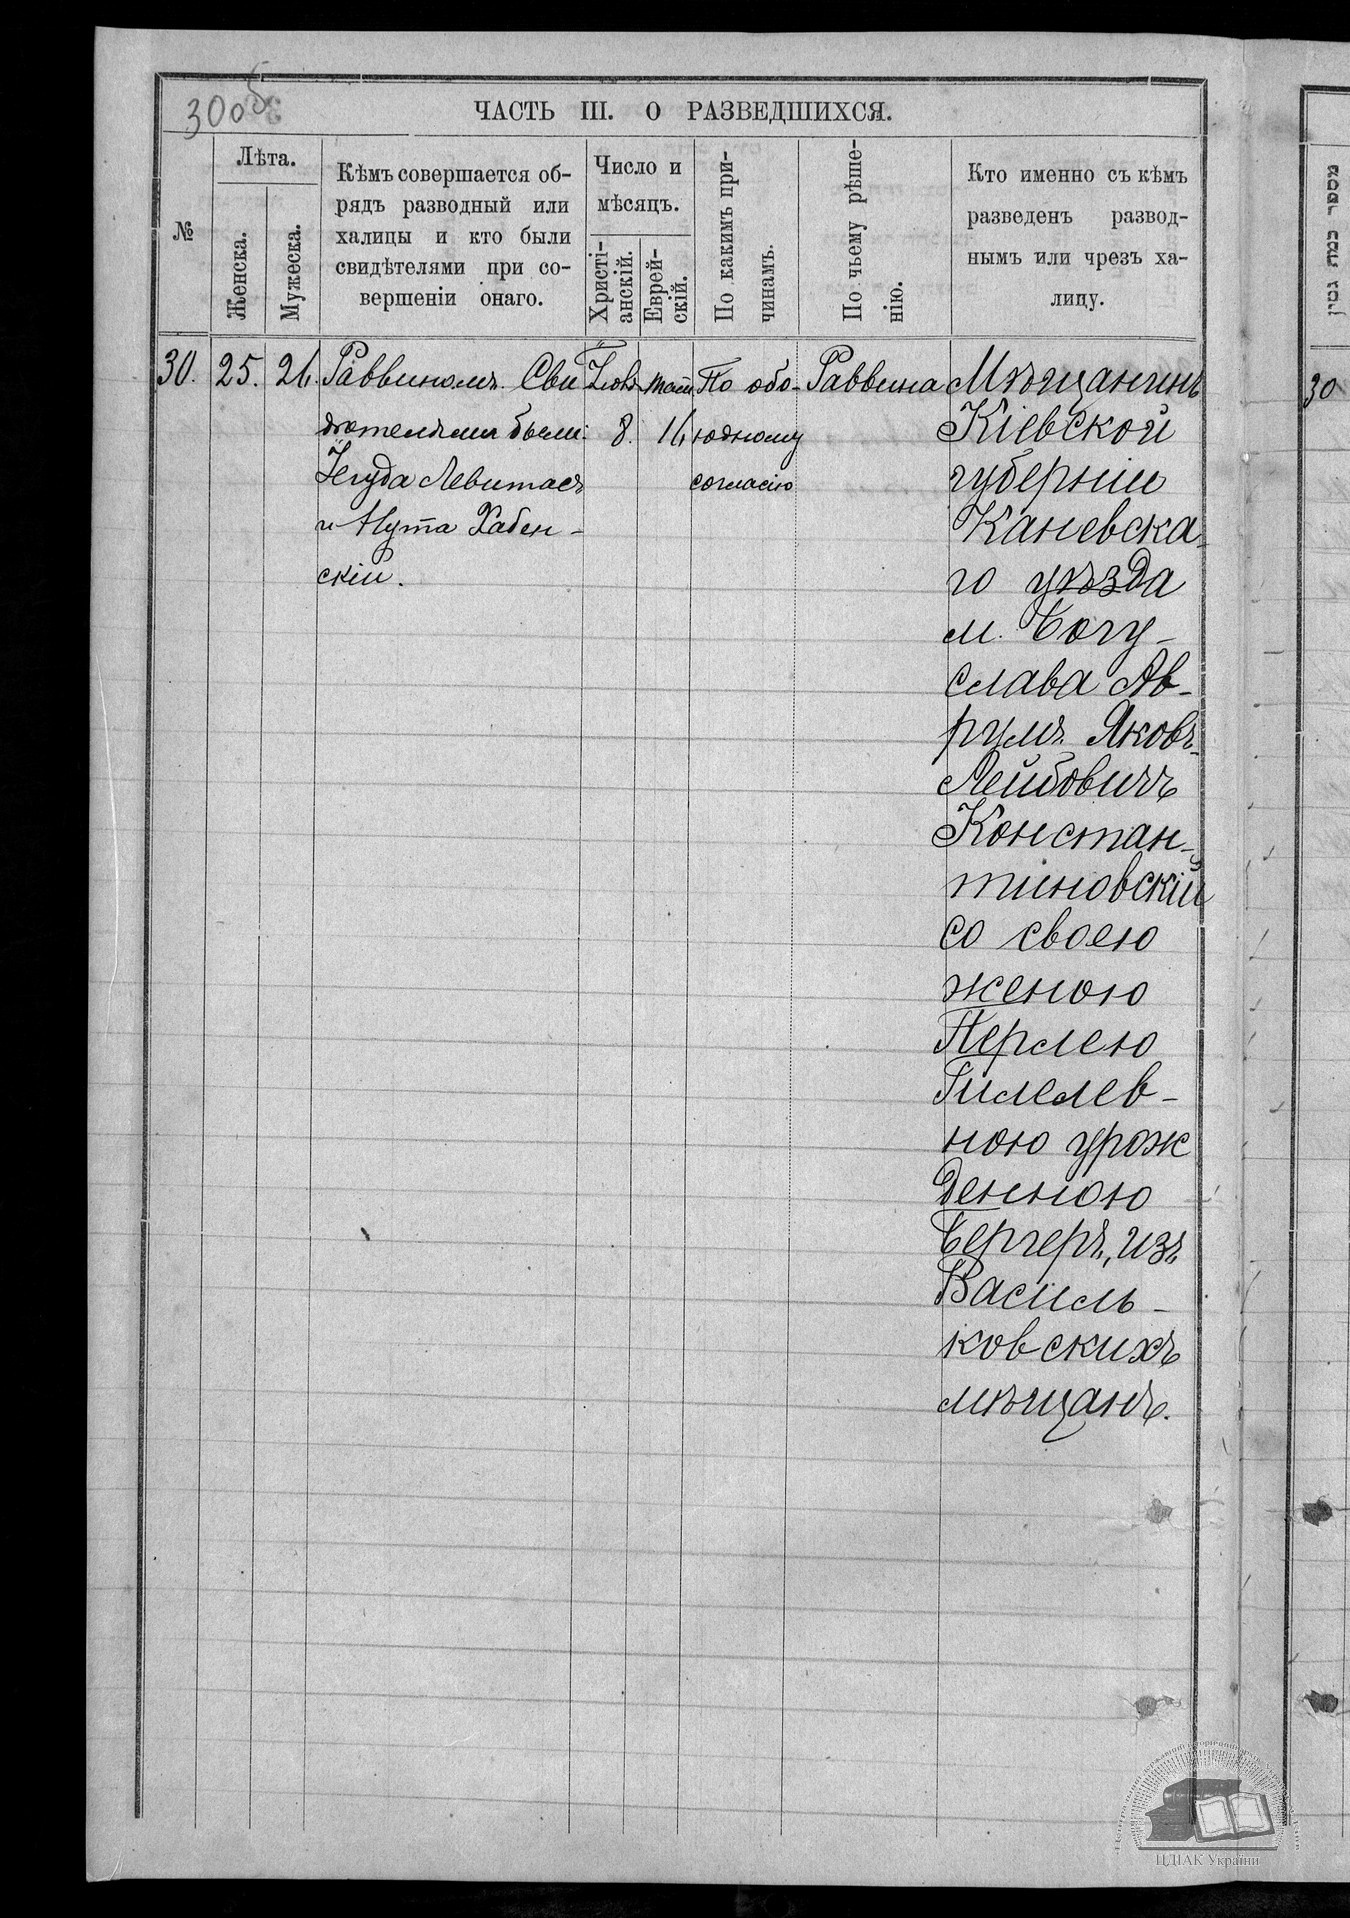 300б
ЧАСТЬ III. О РАЗВЕДШИХСЯ.
№
Лѣта.
Женска.
Мужеска.
Кѣмъ совершается об-
рядъ разводный или
халицы и кто были
свидѣтелями при со-
вершеніи онаго.
Число и
мѣсяцъ.
Христі-
анскій.
Еврей-
скій.
По какимъ при-
чинамъ.
По чьему рѣше-
нію.
Кто именно съ кѣмъ
разведенъ развод-
нымъ или чрезъ ха-
лицу.
30. 25. 26.
Раввиномъ. Сви
дѣтелями были:
Іегуда Левитасъ
и Нута Хабен-
скій.
8. 16
По обо-
юдному
согласію
Раввина
Мѣщанинъ
Кіевской
губерніи
Каневска-
го уѣзда
м. Богу-
слава Ав-
румъ Яковъ-
Лейбовичъ
Констан-
тиновскій
со своею
женою
Перлею
Гилелев-
ною урож
денною
Бергеръ, изъ
Василь-
ковскихъ
мѣщанъ.
מספר כמה גטין
30
ЦДІАК України